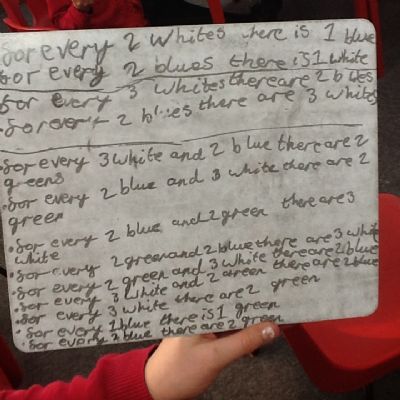 for every 2 whites there is 1 blue
for every 2 blues there is 1 white
for every 3 whites there are 2 blues
• for every 2 blues there are 3 whites
• for every 3 white and 2 blue there are 2
greens
• for every 2 blue and 3 white there are 2
green
• for every 2 blue and 2 green there are 3
white
• for every 2 green and 2 blue there are 3 white
• for every 2 green and 3 white there are 2 blue
• for every 3 white and 2 green there are 2 blue
• for every 3 white there are 2 green
• for every 1 blue there is 1 green
• for every 2 blue there are 2 green